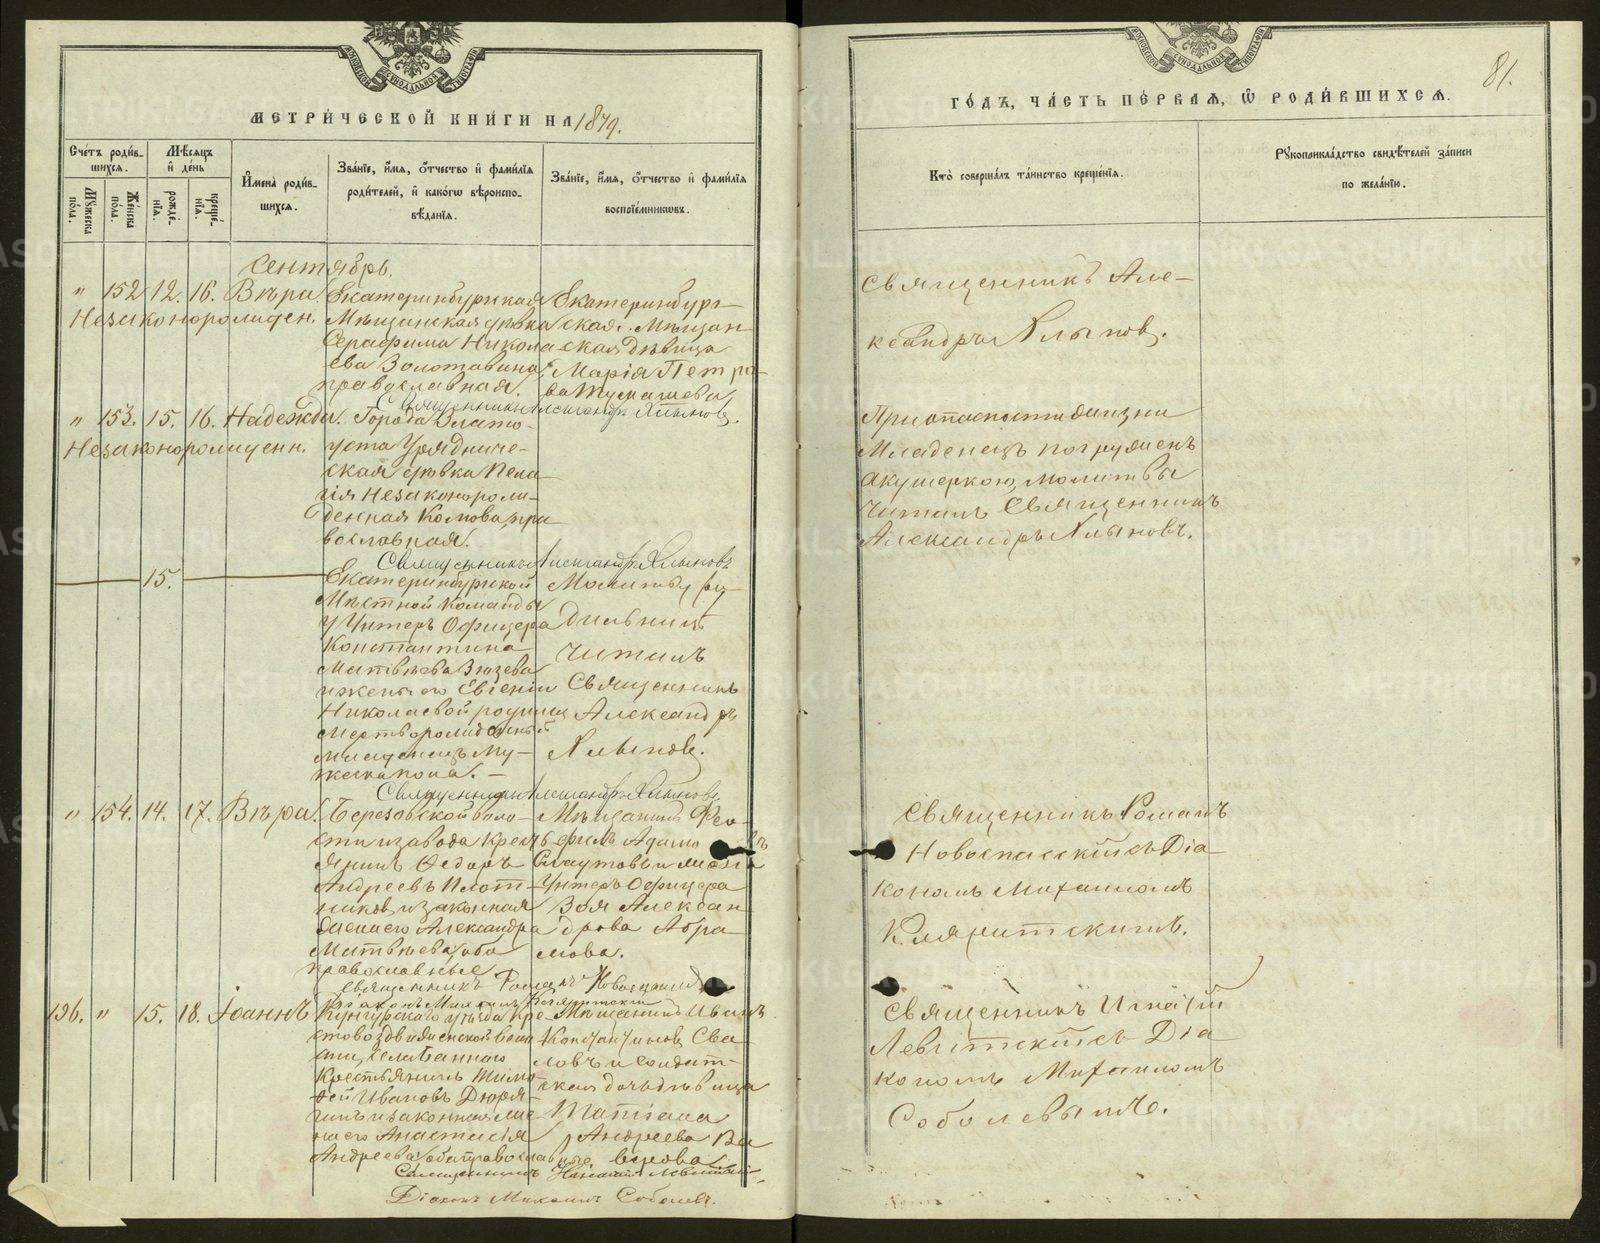 МЕТРИ́ЧЕСКОЙ КНИ́ГИ НА 1879.
Сче́тъ роди́в-
шихся.
Мѣ́сяцъ
и҆ де́нь
Му́жеска по́ла.
Же́нска по́ла.
рожде́-
нїѧ.
креще́-
нїѧ.
И҆мена̀ роди́в-
шихсѧ.
Зва́нїе, и҆́мѧ, ѻ҆́тчество и҆ фами́лїѧ
роди́телей, и҆ како́гѡ вѣроиспо-
вѣ́данїѧ.
Зва́нїе, и҆́мѧ, ѻ҆́тчество и҆ фами́лїѧ
воспрїе́мникѡвъ.
Сентябрь.
" 152 12. 16. Вѣра.
Незаконорожден.
Екатеринбургская
Мѣщанская дѣвка
Серафима Никола
ева Золотавина,
православная.
Екатеринбург-
ская Мѣщан
ская Дѣвица
Марія Петро-
ва Тумашева
Священникъ Александръ Хлыновъ.
" 153. 15. 16. Надежда.
Незаконорожденн.
Города Злато-
уста Уряднич-
ская дѣвка Пела
гія Незаконорож-
денная Комова, пра
вославная.
Священникъ Александръ Хлыновъ
15.
Екатеринбургской
Мѣстной Команды
Унтеръ Офицера
Константина
Матвѣева Зюзева
и жены его Евгеніи
Николаевой родился
мертворожденный
младенецъ му-
жеска пола. -
Молитву ро
дильницѣ
читалъ
Священникъ
Александръ
Хлыновъ.
Священникъ Александръ Хлыновъ
" 154. 14. 17. Вѣра.
Березовской воло-
сти и завода крест
янинъ Ѳедоръ
Андреевъ Плот-
никовъ и законная
жена его Александра
Матвѣева, оба
православные
Мѣщанинъ
Унтеръ Офицера
Зоя Алексан
дрова Абра
мова.
Священникъ Романъ Новоспасскій
Діаконъ Михаилъ
136. " 15. 18. Іоаннъ
Кунгурскаго уѣзда Кре-
стовоздвиженской воло
сти,
Крестьянинъ Тимо-
ѳей Ивановъ
и законная же-
на его Анастасія
Андреева, оба православные
Мѣщанинъ Иванъ
Константиновъ
и солдат-
ская дочь дѣвица
Татіана
Андреева
Священникъ Игнатій Левитскій
Діаконъ Михаилъ Соболевъ.
81.
ГО́ДЪ, ЧА́СТЬ ПЕ́РВАѦ, Ѡ҆ РОДИ́ВШИХСѦ.
Кто̀ соверша́лъ та́инство креще́нїѧ.
Рꙋкоприкла́дство свидѣ́телей за́писи
по жела́нїю.
Священникъ Але-
ксандръ Хлыновъ.
При опасности жизни
Младенецъ погруженъ
акушеркою, молитвы
читалъ Священникъ
Александръ Хлыновъ.
Священникъ Романъ
Новоспасскій съ Діа-
кономъ Михаиломъ
Священникъ Игнатій
Левитскій съ Діа
кономъ Михаиломъ
Соболевымъ.